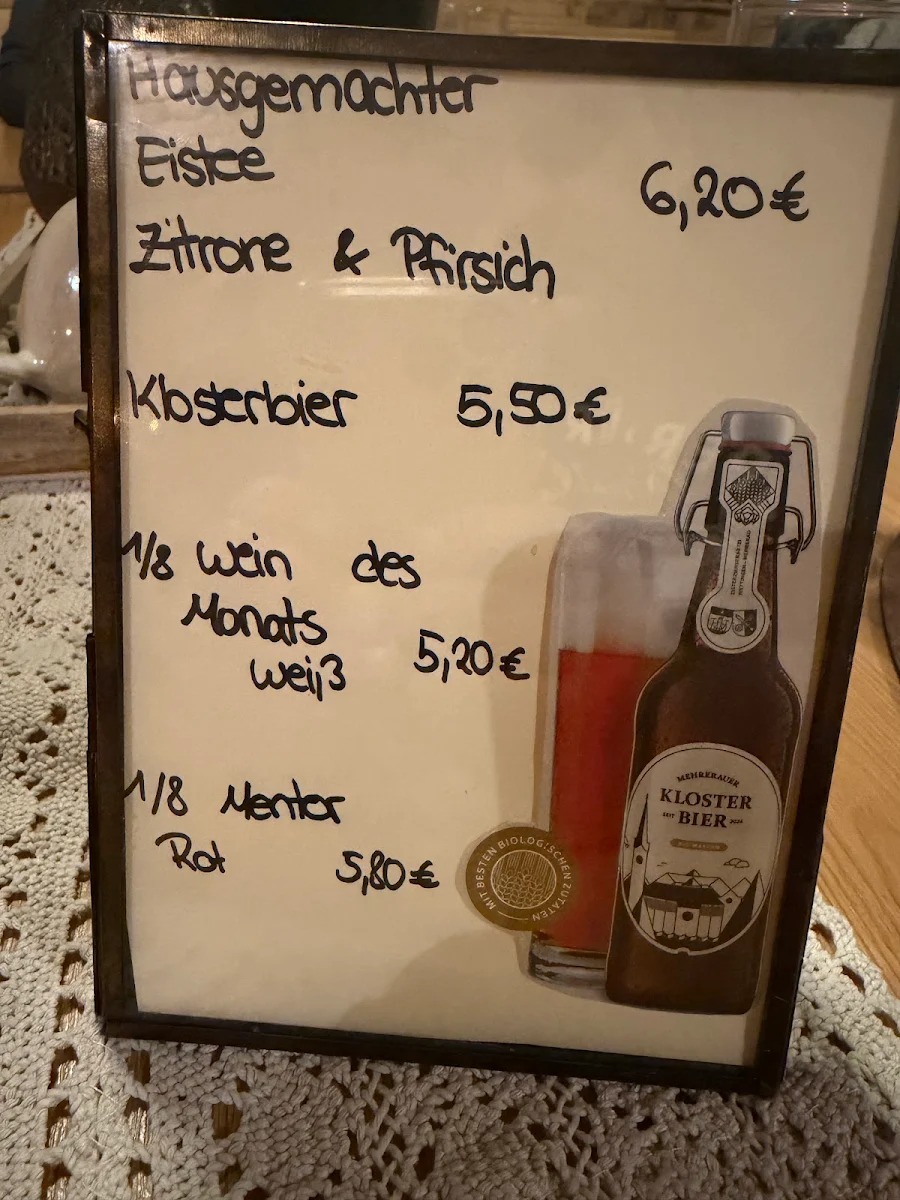 Hausgemachter
Eistee
6,20 €
Zitrone & Pfirsich
Klosterbier 5,50 €
1/8 Wein des
Monats
weiß 5,20 €
1/8 Mentor
Rot 5,80 €
MIT BESTEN BIOLOGISCHEN ZUTATEN
MEHRERAUER
KLOSTER
SEIT BIER